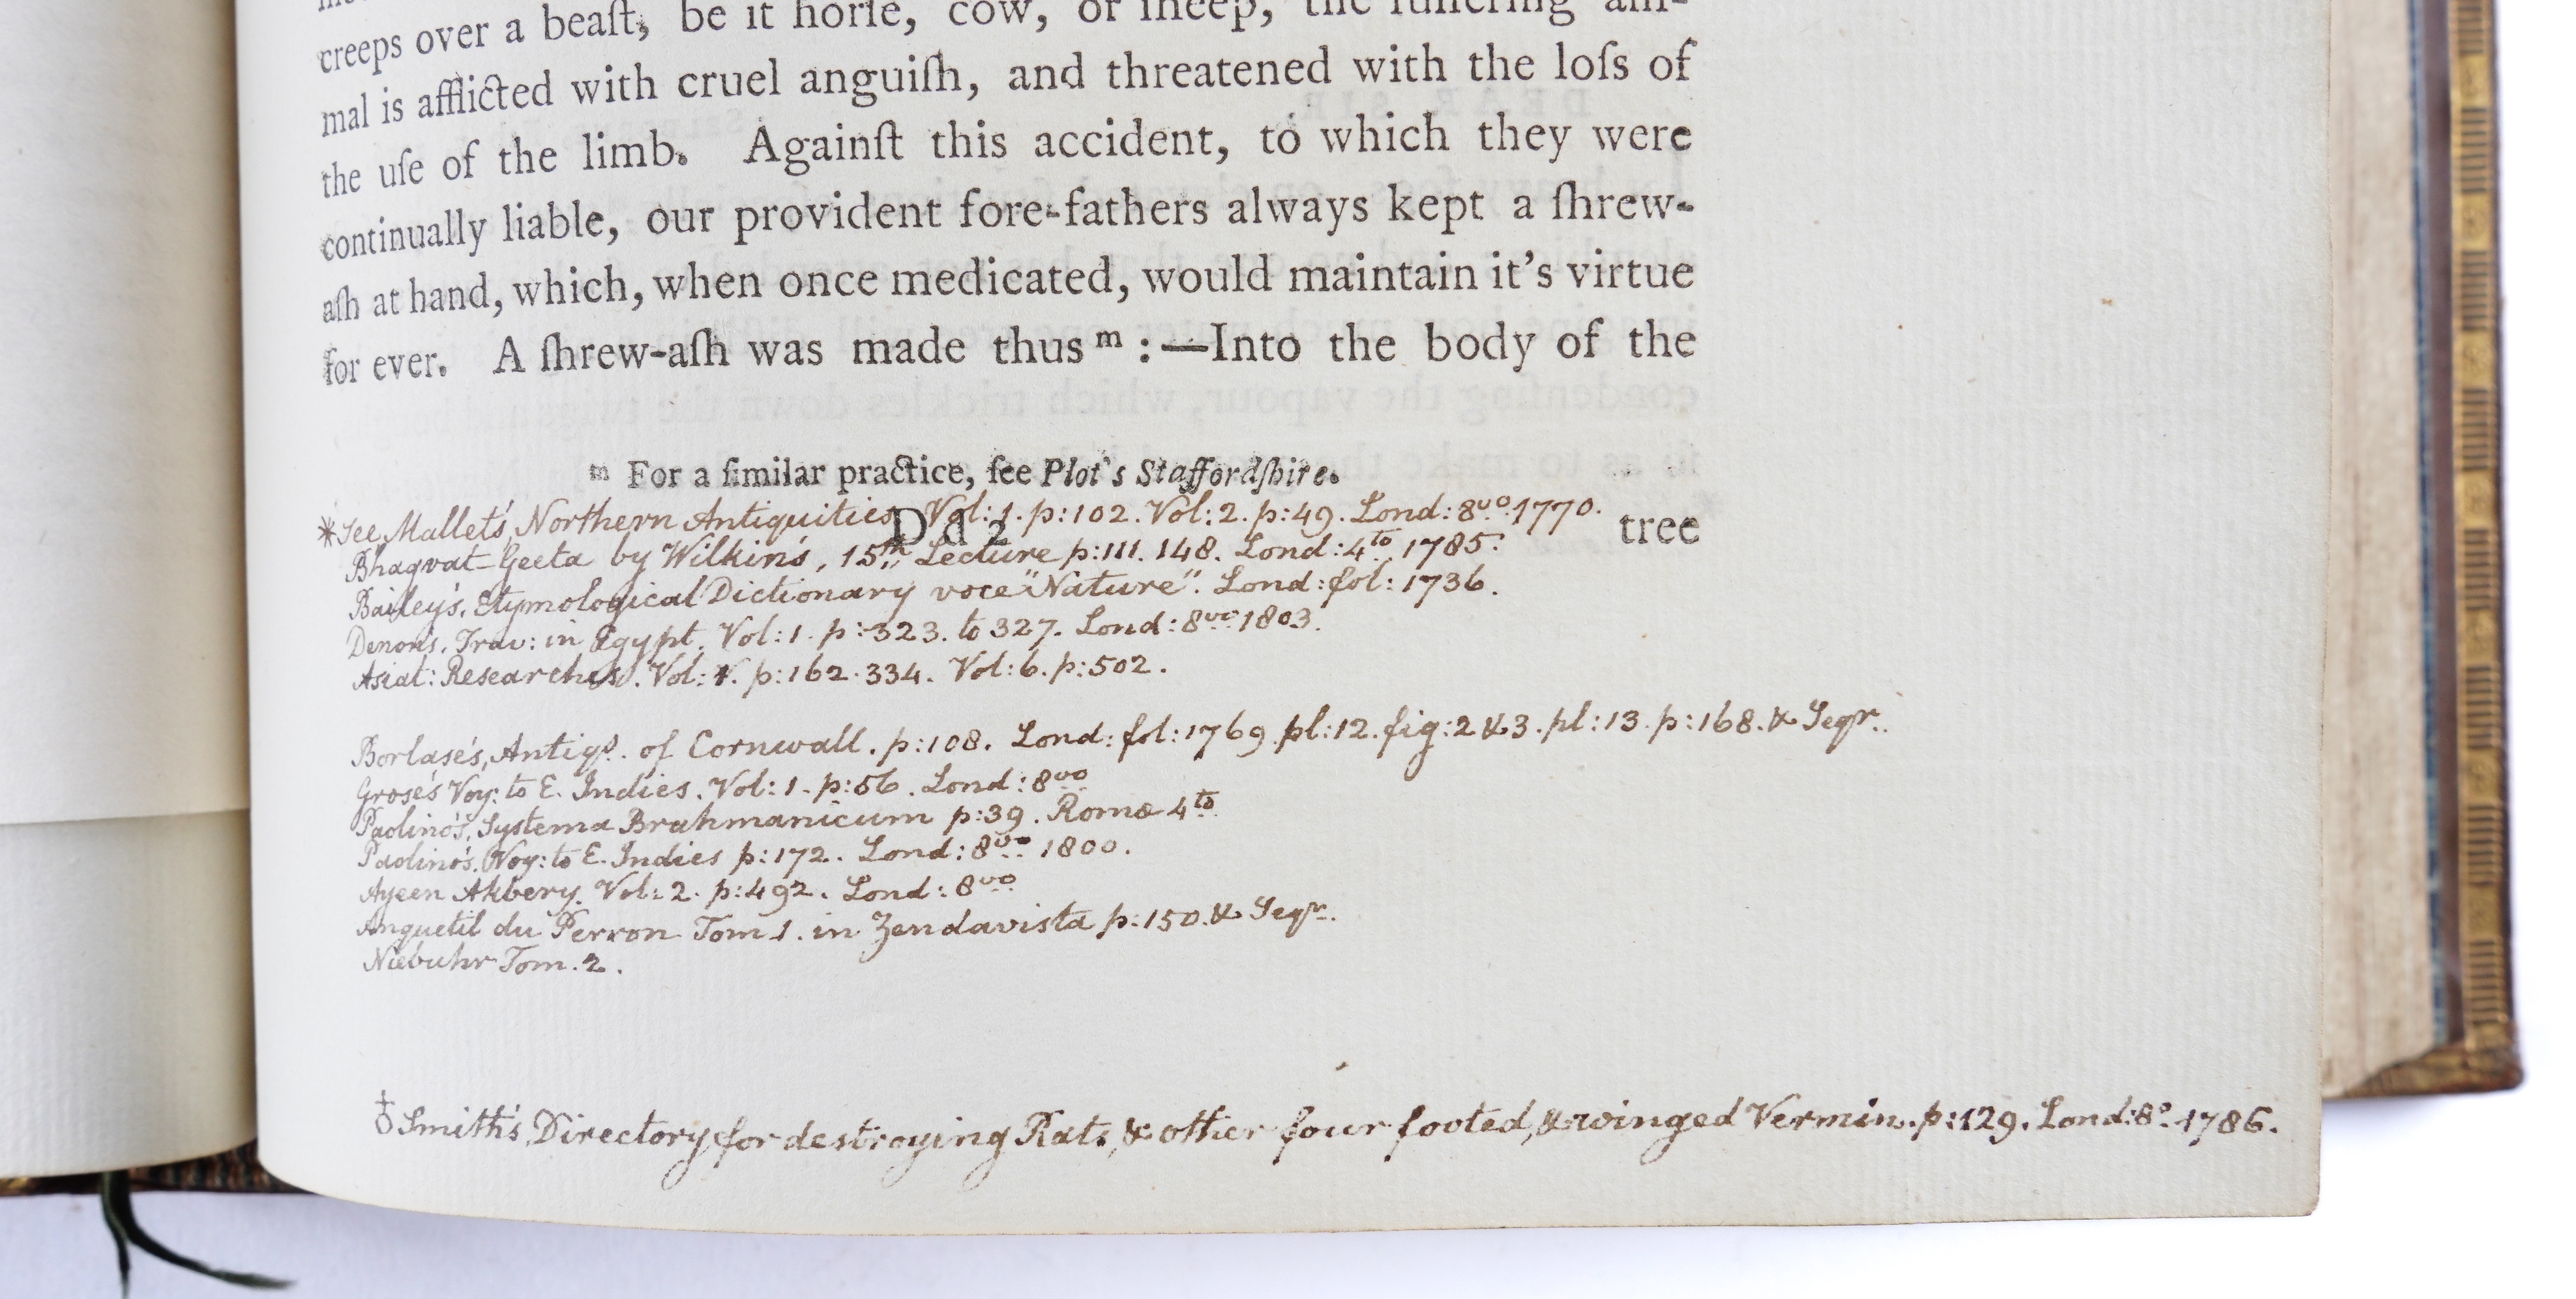 creeps over a beaſt, be it horſe, cow, or ſheep, the ſuffering ani-
mal is afflicted with cruel anguiſh, and threatened with the loſs of
the uſe of the limb. Againſt this accident, to which they were
continually liable, our provident fore-fathers always kept a ſhrew-
aſh at hand, which, when once medicated, would maintain it's virtue
for ever. A ſhrew-aſh was made thus ᵐ :—Into the body of the
ᵐ For a ſimilar practice, ſee Plot's Staffordſhire.
D d 2 tree
*See Mallet's Northern Antiquities Vol: 1. p: 102. Vol: 2. p: 49. Lond: 8vo 1770.
Bhagvat-Geeta by Wilkin's, 15th Lecture p: 111. 148. Lond: 4to 1785.
Bailey's. Etymological Dictionary voce "Nature". Lond: fol: 1736.
Denon's. Trav: in Egypt. Vol: 1. p: 323. to 327. Lond: 8vo 1803.
Asiat: Researches. Vol: p: 162. 334. Vol: 6. p: 502.
Borlase's, Antiqs. of Cornwall. p: 108. Lond: fol: 1769. pl: 12. fig: 2 & 3. pl: 13. p: 168. & Seqr.
Grose's Voy: to E. Indies. Vol: 1. p: 56. Lond: 8vo
Paolino's. Systema Brahmanicum p: 39. Romæ 4to
Paolino's. Voy: to E. Indies p: 172. Lond: 8vo 1800.
Ayeen Akbery. Vol: 2. p: 492. Lond: 8vo
Anquetil du Perron Tom 1. in Zendavista p: 150. & Seqr.
Niebuhr Tom. 2.
Smith's Directory for destroying Rats, & other four footed, & winged Vermin. p: 129. Lond: 8o 1786.